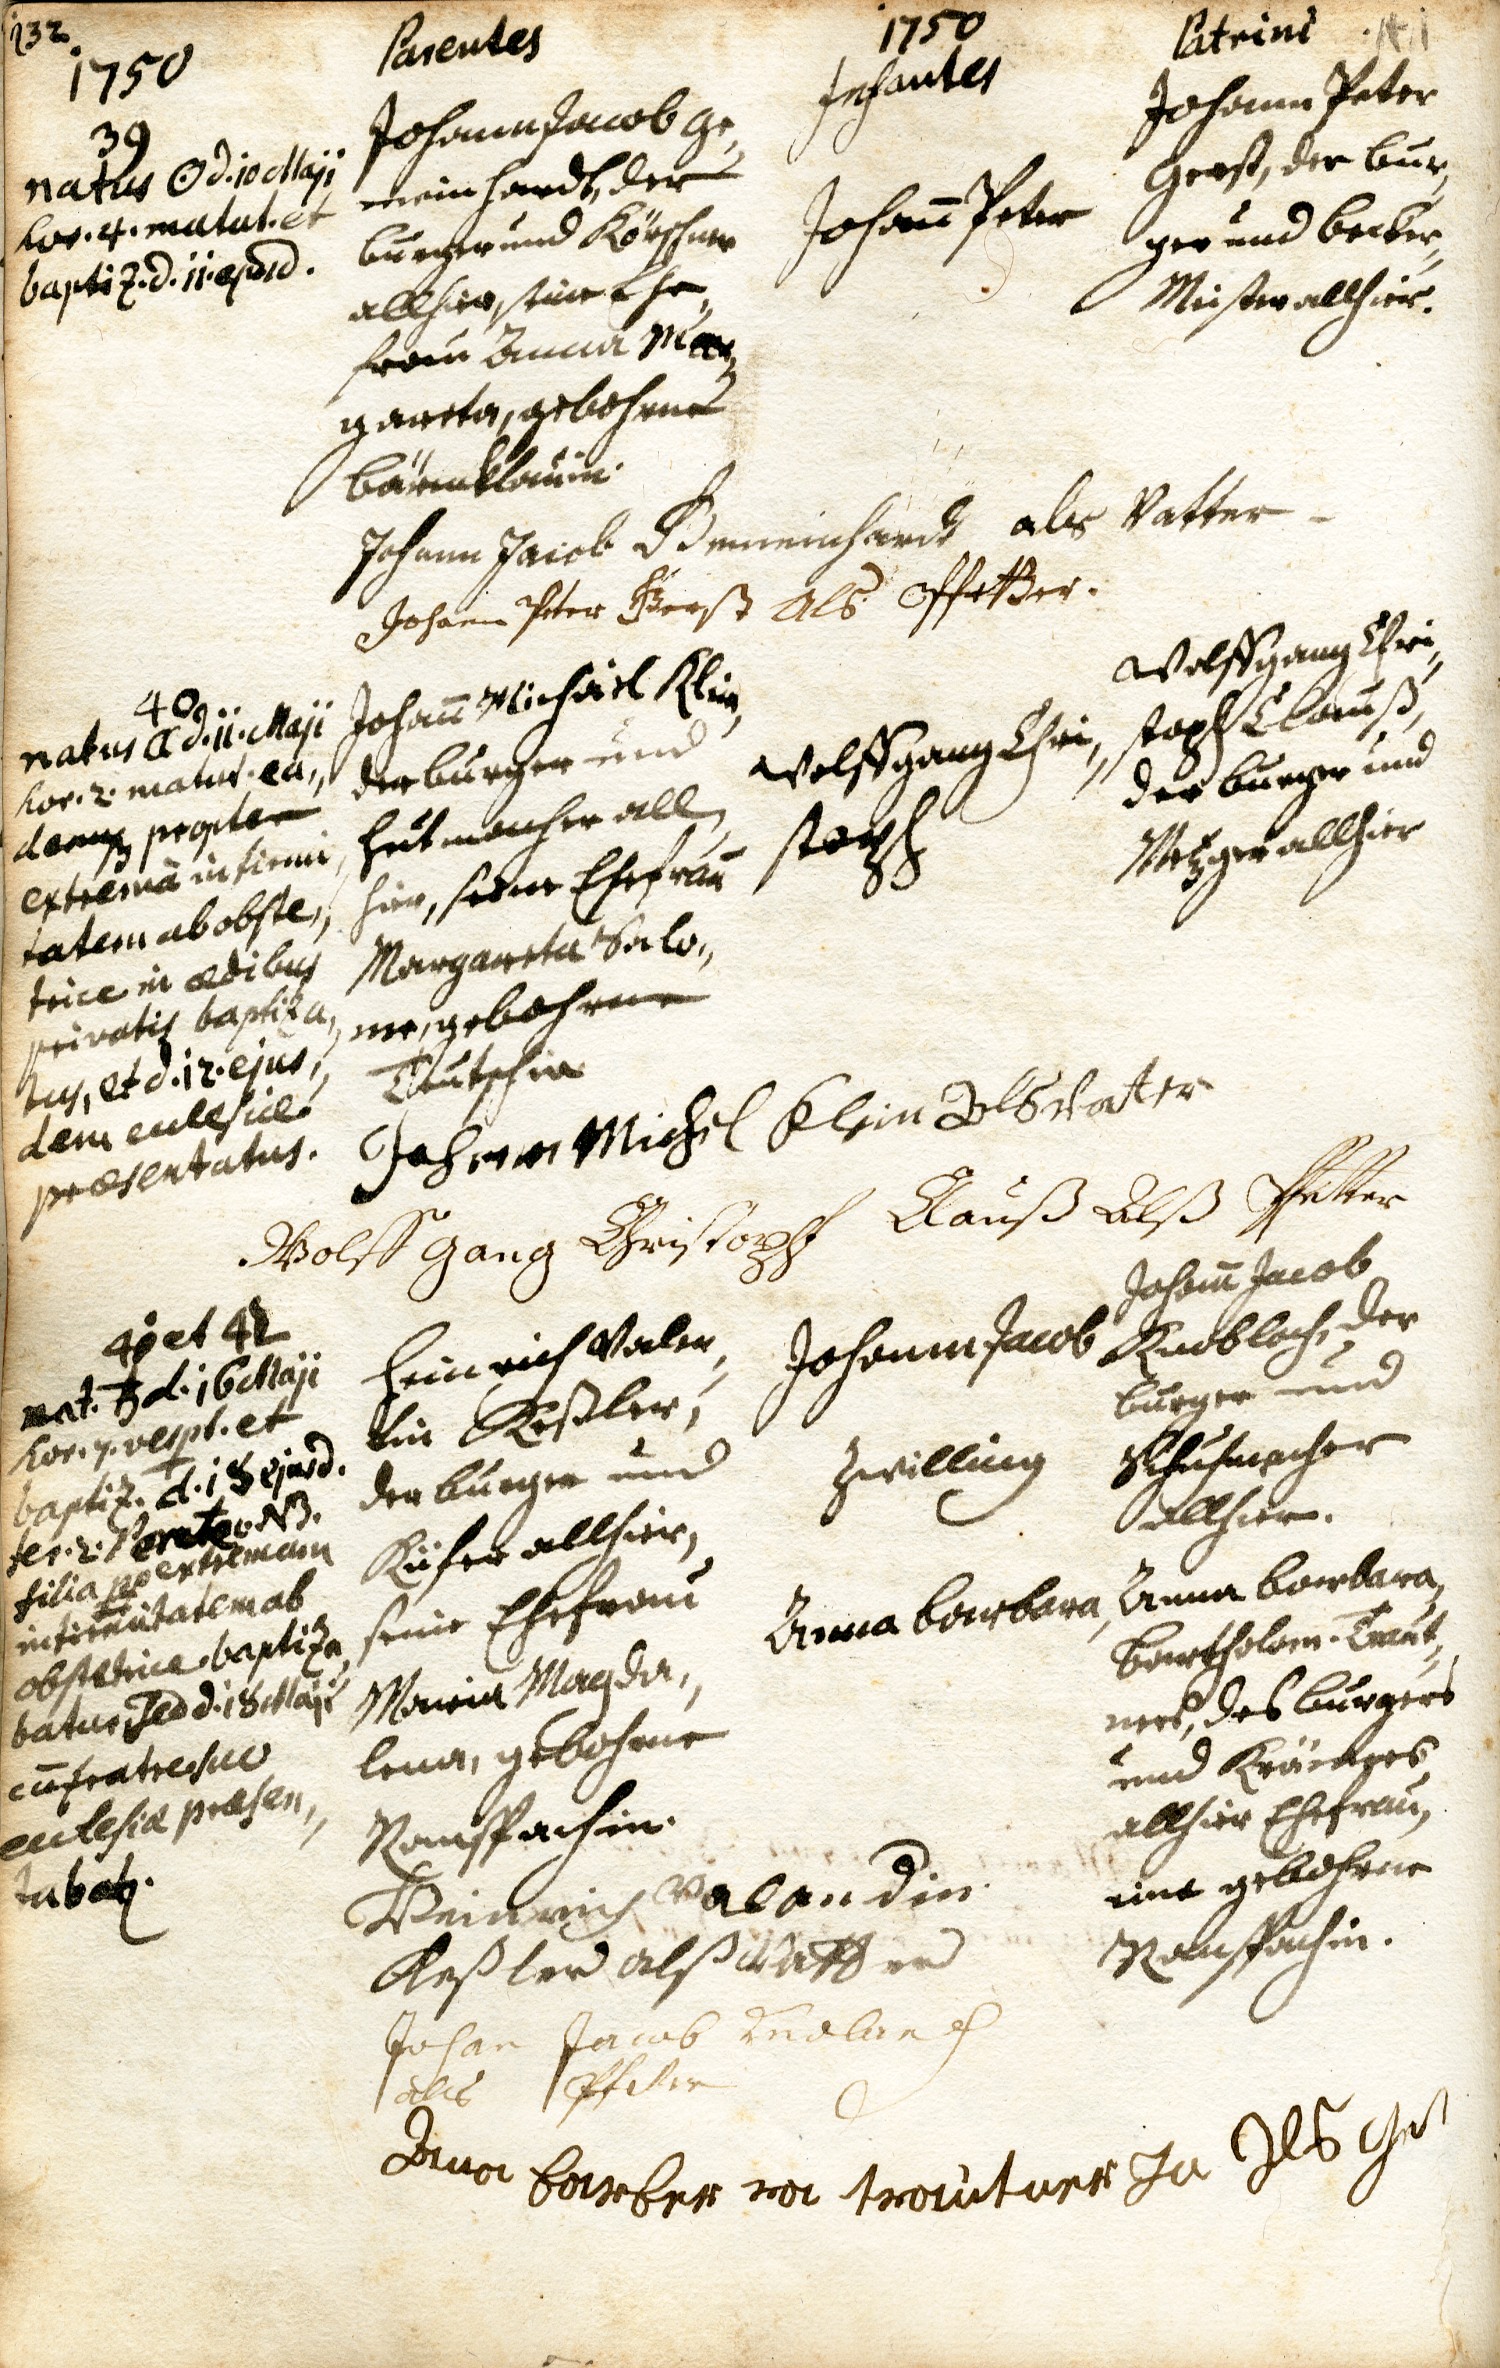 132.
1750
Parentes
1750
Infantes
Patrini
39
natus ☉ d. 10 Maji
hor. 4. matut. et
baptiz. d. 11. ejusd.
Johann Jacob Ge,,
meinhardt, der
burger und Kürschner
allhier, seine Ehe,,
frau Anna Mar,,
gareta, gebohrne
Bärenklauin.
Johann Peter
Johann Peter
Gerst, der bur,,
ger und Becker,,
Meister allhier.
Johann Jacob Gemeinhardt als Vatter
Johann Peter Gerst als Pfetter.
40
natus ☾ d. 11. Maji
hor. 2. matut. ea,,
demq propter
extremā infirmi,,
tatem ab obste,,
trice in ædibus
privatis baptiza,,
tus, et d. 12. ejus,,
dem ecclesiæ
præsentatus.
Johañ Michäel Klein,
der burger und
Hutmacher all,,
hier, seine Ehefrau
Margareta Salo,,
me, gebohrne
Teutschin
Wolffgang Chri,,
stoph
Wolffgang Chri,,
stoph Clauß,
der burger und
Metzger allhier
Johann Michel Klein Als vatter
Wolff gang Christoph Clauß Alß Pfetter
41 et 42
nat. ♄ d. 16 Maji
hor. 7. vespt. et
baptiz. d. 18 ejusd.
fer. 2. NB.
filia extremam
infirmitatem ab
obstetrice baptiza,,
batur, sed d. 18 Maji
cū fratre suo
ecclesiæ præsen,,
tabatz.
Heinrich Valen,,
tin Keßler,
der burger und
Küfer allhier,
seine Ehefrau
Maria Magda,,
lena, gebohrne
Ramspachin.
Johann Jacob
Zwilling
Anna Barbara,
Johann Jacob
Knobloch, der
burger und
Schuhmacher
allhier.
Anna Barbara,
Bartholom. Traut,,
ners, des burgers
und Krämers
allhier Ehefrau,
eine gebohrne
Ramspachin.
Heinrich Valandin
Keßler alß Vatter
Johan Jacob
als Pfetter
Anna barber ra trautner In Als Get